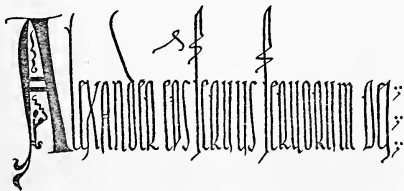 Alexander eps seruus seruorum dei